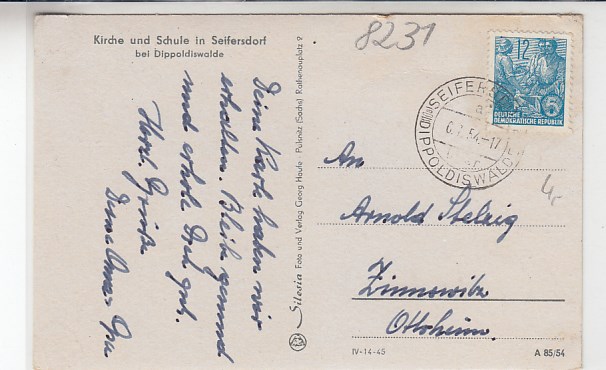 Kirche und Schule in Seifersdorf
bei Dippoldiswalde
8231
Deine Karte haben wir
erhalten. Bleib gesund
und erhole Dich gut.
Herzl. Grüße
Deine Oma
Silesia Foto und Verlag Georg Haufe · Pulsnitz (Sachs) Rathenauplatz 9
12
DEUTSCHE
DEMOKRATISCHE REPUBLIK
5
SEIFERS
(DIPPOLDISWALDE)
54.-17
An
Arnold Stelzig
Zinnowitz
Ottoheim.
4,-
IV-14-45
A 85/54